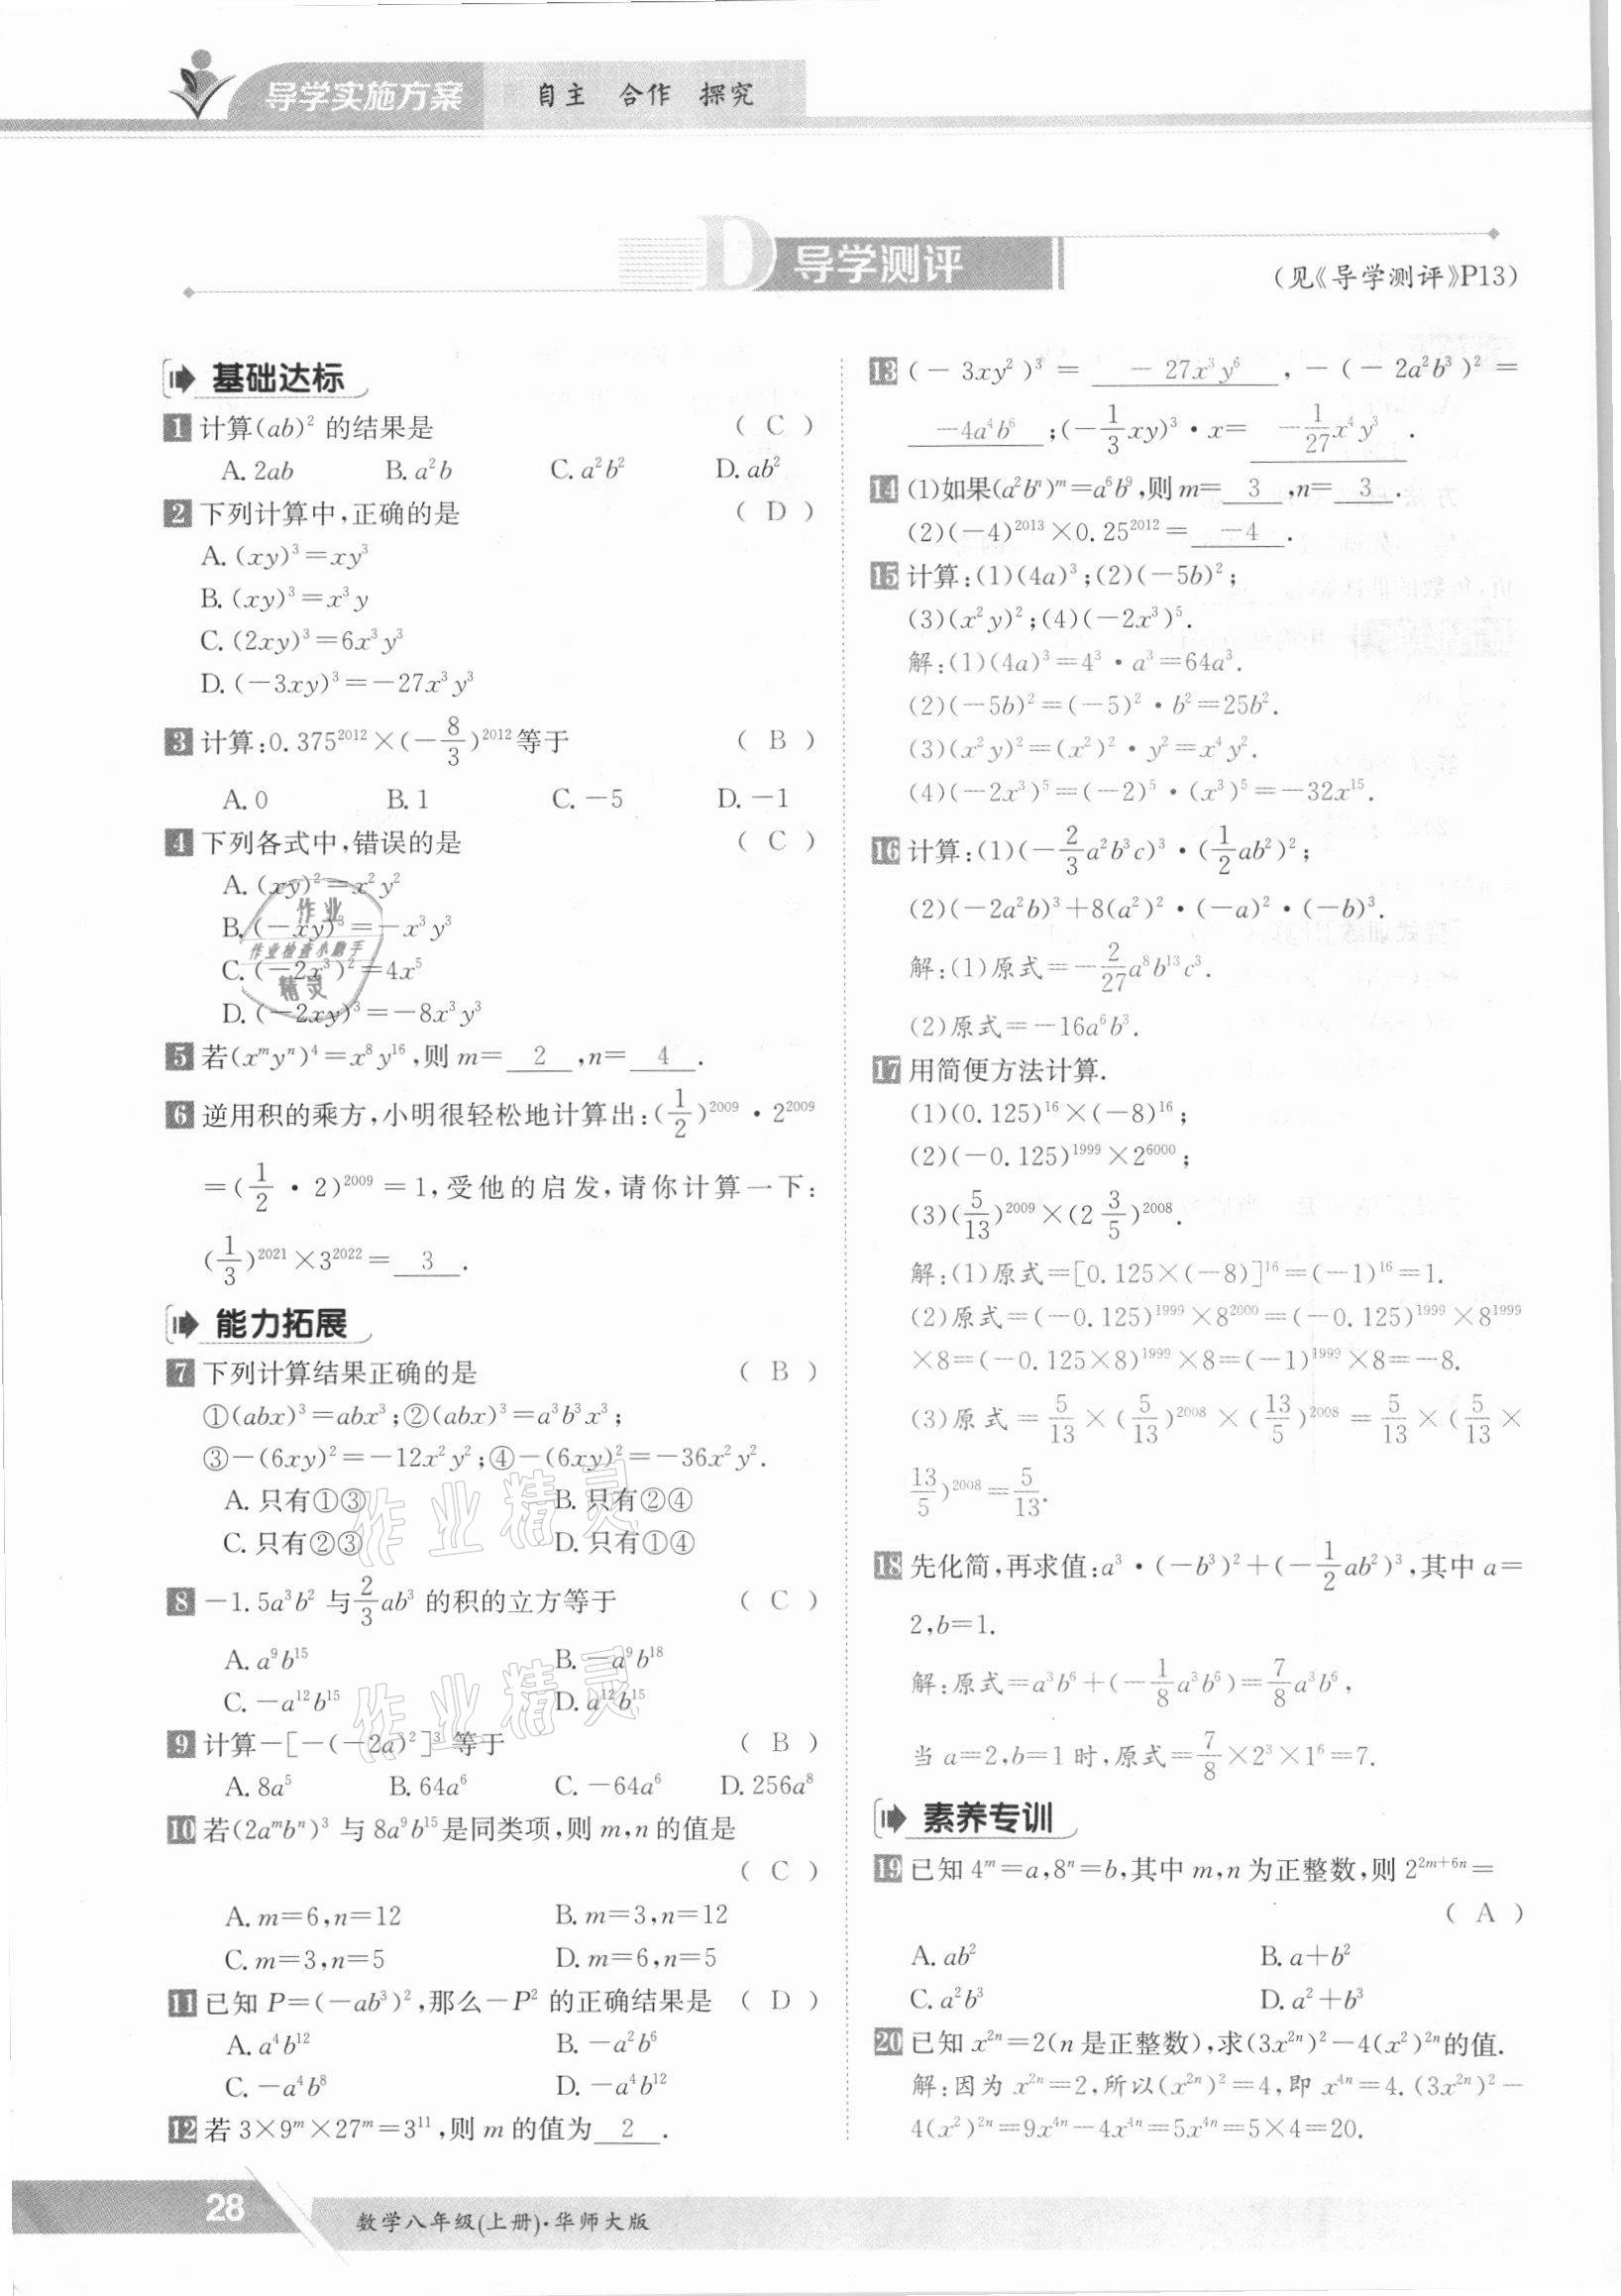 导学实施方案 自主 合作 探究
D 导学测评
(见《导学测评》P13)
基础达标
1 计算(ab)² 的结果是 ( C )
A. 2ab B. a²b C. a²b² D. ab²
2 下列计算中,正确的是 ( D )
A. (xy)³=xy³
B. (xy)³=x³y
C. (2xy)³=6x³y³
D. (−3xy)³=−27x³y³
3 计算:0.375²⁰¹²×(−8/3)²⁰¹²等于 ( B )
A. 0 B. 1 C. −5 D. −1
4 下列各式中,错误的是 ( C )
A. (xy)²=x²y²
B. (−xy)³=−x³y³
C. (−2x³)²=4x⁵
D. (−2xy)³=−8x³y³
作业
作业检查小助手
精灵
5 若(xᵐyⁿ)⁴=x⁸y¹⁶,则 m= 2 ,n= 4 .
6 逆用积的乘方,小明很轻松地计算出:(1/2)²⁰⁰⁹·2²⁰⁰⁹
=(1/2·2)²⁰⁰⁹=1,受他的启发,请你计算一下:
(1/3)²⁰²¹×3²⁰²²= 3 .
能力拓展
7 下列计算结果正确的是 ( B )
①(abx)³=abx³;②(abx)³=a³b³x³;
③−(6xy)²=−12x²y²;④−(6xy)²=−36x²y².
A. 只有①③ B. 只有②④
C. 只有②③ D. 只有①④
作业精灵
8 −1.5a³b² 与2/3ab³ 的积的立方等于 ( C )
A. a⁹b¹⁵ B. −a⁹b¹⁸
C. −a¹²b¹⁵ D. a¹²b¹⁵
作业精灵
9 计算−[−(−2a)²]³ 等于 ( B )
A. 8a⁵ B. 64a⁶ C. −64a⁶ D. 256a⁸
10 若(2aᵐbⁿ)³ 与 8a⁹b¹⁵是同类项,则 m,n 的值是
( C )
A. m=6,n=12 B. m=3,n=12
C. m=3,n=5 D. m=6,n=5
11 已知 P=(−ab³)²,那么−P² 的正确结果是 ( D )
A. a⁴b¹² B. −a²b⁶
C. −a⁴b⁸ D. −a⁴b¹²
12 若 3×9ᵐ×27ᵐ=3¹¹,则 m 的值为 2 .
13 (−3xy²)³= −27x³y⁶ ,−(−2a²b³)²=
−4a⁴b⁶ ;(−1/3xy)³·x= −1/27x⁴y³ .
14 (1)如果(a²bⁿ)ᵐ=a⁶b⁹,则 m= 3 ,n= 3 .
(2)(−4)²⁰¹³×0.25²⁰¹²= −4 .
15 计算:(1)(4a)³;(2)(−5b)²;
(3)(x²y)²;(4)(−2x³)⁵.
解:(1)(4a)³=4³·a³=64a³.
(2)(−5b)²=(−5)²·b²=25b².
(3)(x²y)²=(x²)²·y²=x⁴y².
(4)(−2x³)⁵=(−2)⁵·(x³)⁵=−32x¹⁵.
16 计算:(1)(−2/3a²b³c)³·(1/2ab²)²;
(2)(−2a²b)³+8(a²)²·(−a)²·(−b)³.
解:(1)原式=−2/27a⁸b¹³c³.
(2)原式=−16a⁶b³.
17 用简便方法计算.
(1)(0.125)¹⁶×(−8)¹⁶;
(2)(−0.125)¹⁹⁹⁹×2⁶⁰⁰⁰;
(3)(5/13)²⁰⁰⁹×(2 3/5)²⁰⁰⁸.
解:(1)原式=[0.125×(−8)]¹⁶=(−1)¹⁶=1.
(2)原式=(−0.125)¹⁹⁹⁹×8²⁰⁰⁰=(−0.125)¹⁹⁹⁹×8¹⁹⁹⁹
×8=(−0.125×8)¹⁹⁹⁹×8=(−1)¹⁹⁹⁹×8=−8.
(3)原式=5/13×(5/13)²⁰⁰⁸×(13/5)²⁰⁰⁸=5/13×(5/13×
13/5)²⁰⁰⁸=5/13.
18 先化简,再求值:a³·(−b³)²+(−1/2ab²)³,其中 a=
2,b=1.
解:原式=a³b⁶+(−1/8a³b⁶)=7/8a³b⁶,
当 a=2,b=1 时,原式=7/8×2³×1⁶=7.
素养专训
19 已知 4ᵐ=a,8ⁿ=b,其中 m,n 为正整数,则 2²ᵐ⁺⁶ⁿ=
( A )
A. ab² B. a+b²
C. a²b³ D. a²+b³
20 已知 x²ⁿ=2(n 是正整数),求(3x²ⁿ)²−4(x²)²ⁿ的值.
解:因为 x²ⁿ=2,所以(x²ⁿ)²=4,即 x⁴ⁿ=4.(3x²ⁿ)²−
4(x²)²ⁿ=9x⁴ⁿ−4x⁴ⁿ=5x⁴ⁿ=5×4=20.
28 数学八年级(上册)·华师大版